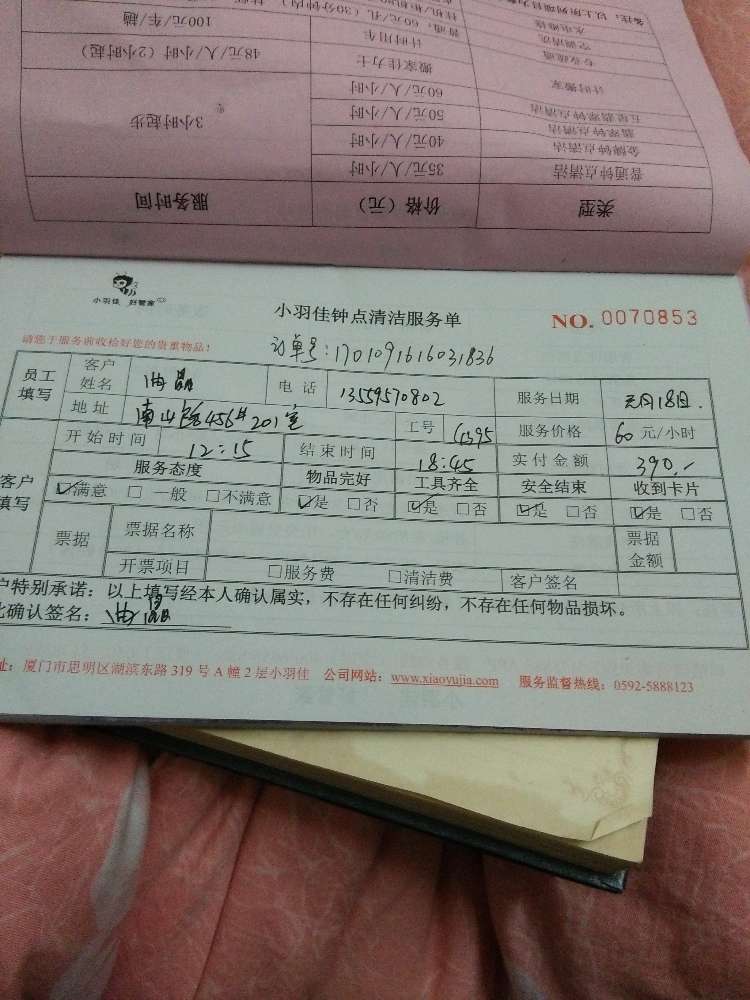 备注：以上所列项目为
水电维修
空调清洗 普通：60元/孔（30分钟内）
专业疏通
计时用车 100元/车/趟
计时搬家 搬家佳力士 48元/人/小时（2小时起）
五星翡翠钟点清洁 60元/人/小时
翡翠钟点清洁 50元/人/小时
金牌钟点清洁 40元/人/小时 3小时起步
普通钟点清洁 35元/人/小时
类型 价格（元） 服务时间
小羽佳 好管家
小羽佳钟点清洁服务单 NO. 0070853
请您于服务前收检好您的贵重物品！ 订单号：1701091616031836
员工填写 客户姓名 电话 13559570802 服务日期 元月18日.
地址 南山路456#201室 工号 服务价格 60元/小时
开始时间 12:15 结束时间 18:45 实付金额 390.-
客户填写 服务态度 物品完好 工具齐全 安全结束 收到卡片
☑满意 □一般 □不满意 ☑是 □否 ☑是 □否 ☑是 □否 ☑是 □否
票据 票据名称 票据金额
开票项目 □服务费 □清洁费 客户签名
户特别承诺：以上填写经本人确认属实，不存在任何纠纷，不存在任何物品损坏。
此确认签名：
址：厦门市思明区湖滨东路319号A幢2层小羽佳 公司网站：www.xiaoyujia.com 服务监督热线：0592-5888123